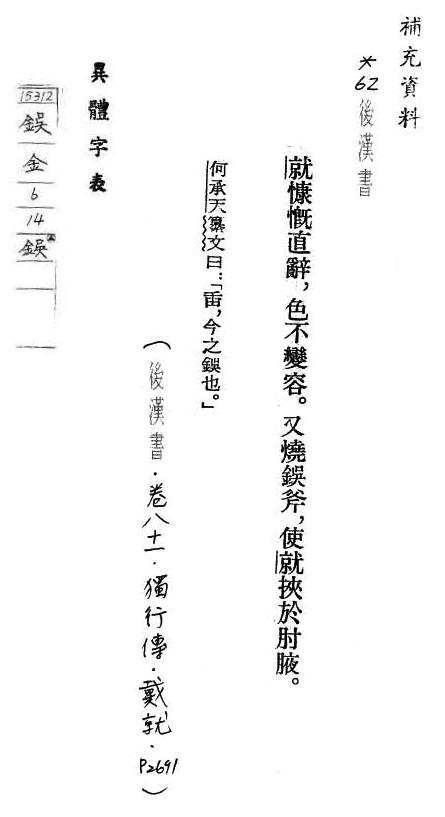 補充資料
*62後漢書
就慷慨直辭，色不變容。又燒鋘斧，使就挾於肘腋。
何承天纂文曰：「臿，今之鋘也。」
（後漢書·卷八十一·獨行傳·戴就·P2691）
異體字表
15312
鋘
金
6
14
鋘